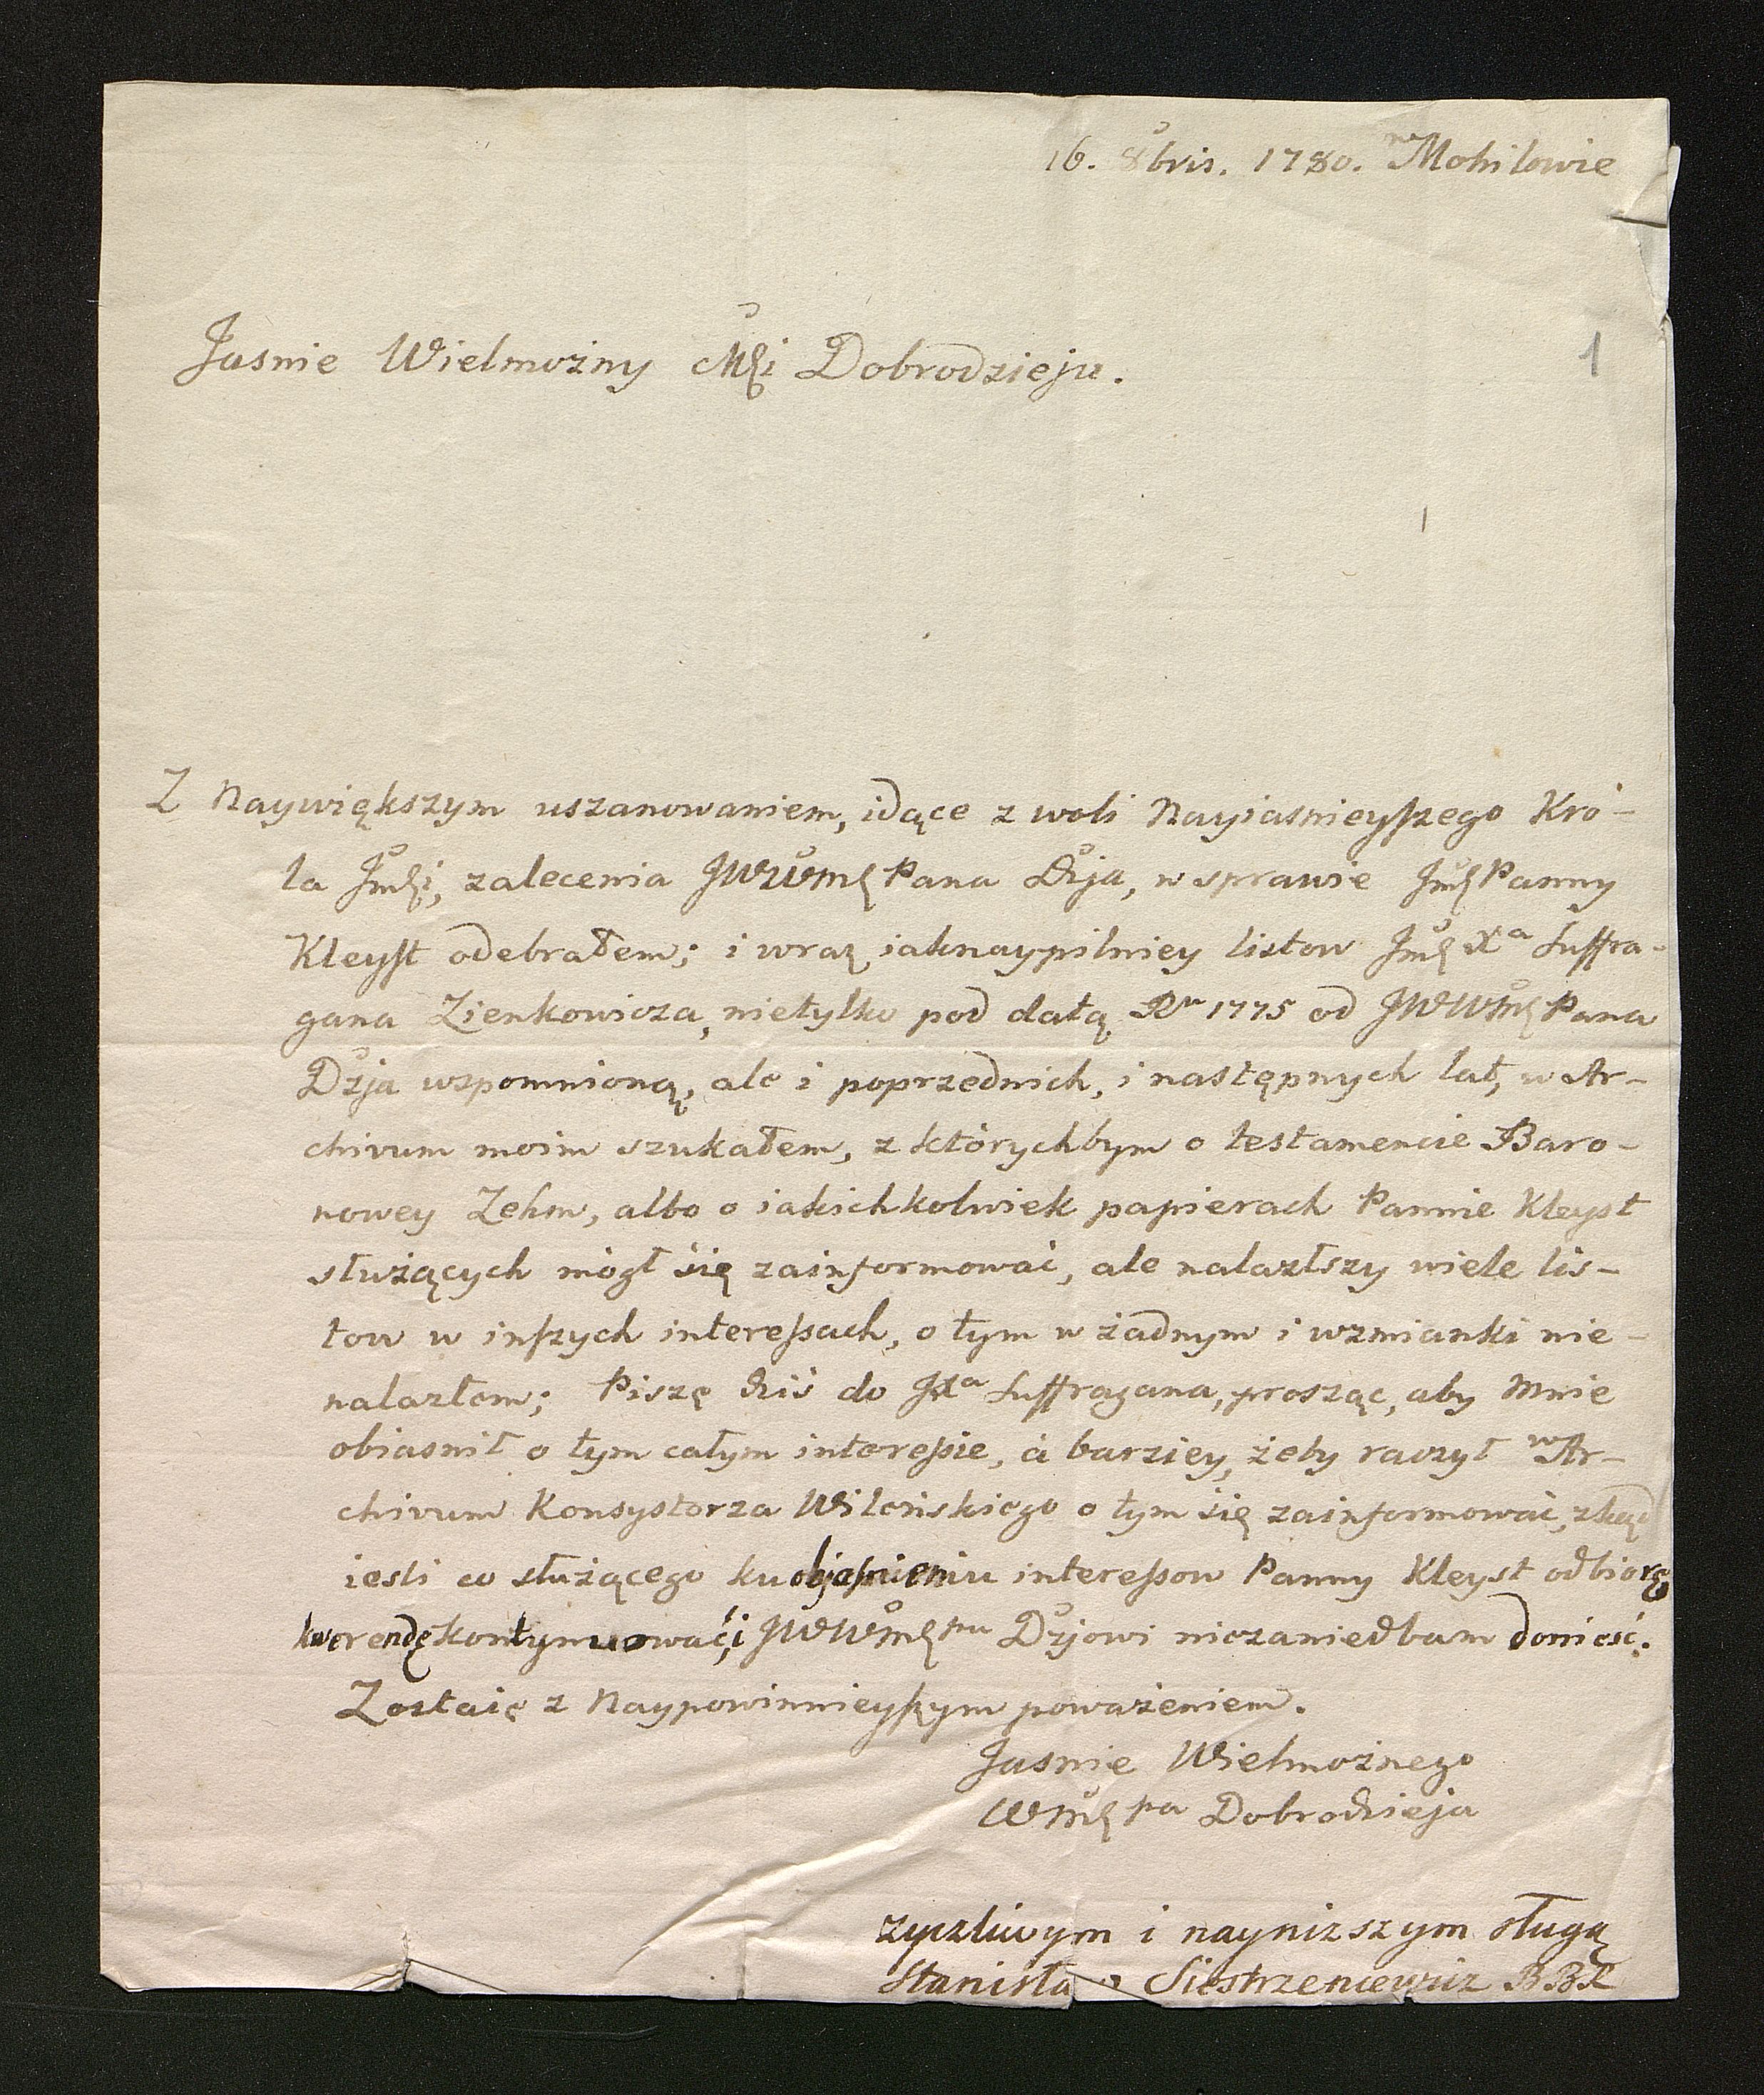 16. 8bris. 1780. w Mohilowie
1
Jasnie Wielmożny Mci Dobrodzieju.
Z Naywiększym uszanowaniem, idące z woli Nayiasnieyszego Kró-
la Jmci, zalecenia JWWmć Pana Dzja, w sprawie Jmć Panny
Kleyst odebrałem; i wraz iaknaypilniey listow Jmć Xa Suffra-
gana Zienkowicza, nietylko pod datą Ru 1775 od JWWmć Pana
Dzja wspomnioną, ale i poprzednich, i następnych lat, w Ar-
chivum moim szukałem, z którychbym o testamencie Baro-
nowey Zehm, albo o iakichkolwiek papierach Pannie Kleyst
służących mógł się zainformować, ale nalazłszy wiele lis-
tow w inszych interessach, o tym w żadnym i wzmianki nie-
nalazłem; Piszę dziś do JXa Suffragana, prosząc, aby mnie
obiasnił o tym całym interessie, á barziey, żeby raczył w Ar-
chivum Konsystorza Wileńskiego o tym się zainformować, zkąd
iesli co służącego ku objasnieniu interessow Panny Kleyst odbiorę
kwerendę kontynuować, i JWWmć Pu Dzjowi niezaniedbam donieść.
Zostaię z Naypowinnieyszym poważeniem.
Jasnie Wielmożnego
Wmć Pa Dobrodzieja
życzliwym i nayniższym sługą
Stanisław Siestrzencewicz BBR